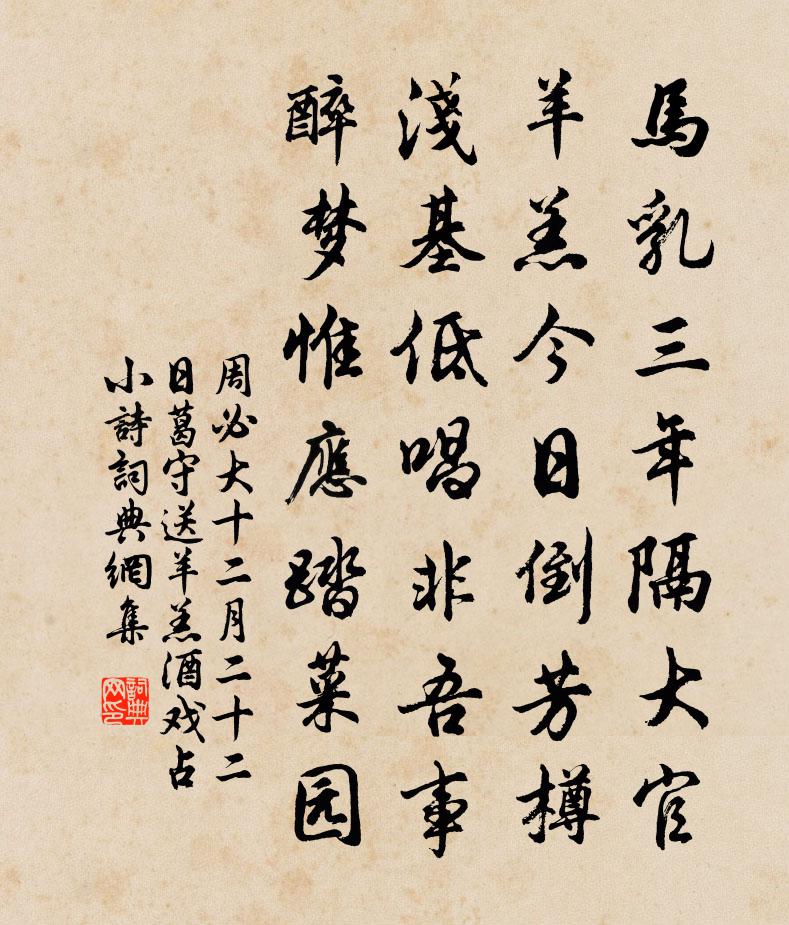 馬乳三年隔大官
羊羔今日倒芳樽
淺基低唱非吾事
醉梦惟應踏菜园
周必大十二月二十二
日葛守送羊羔酒戏占
小詩詞典網集
詞典
网印